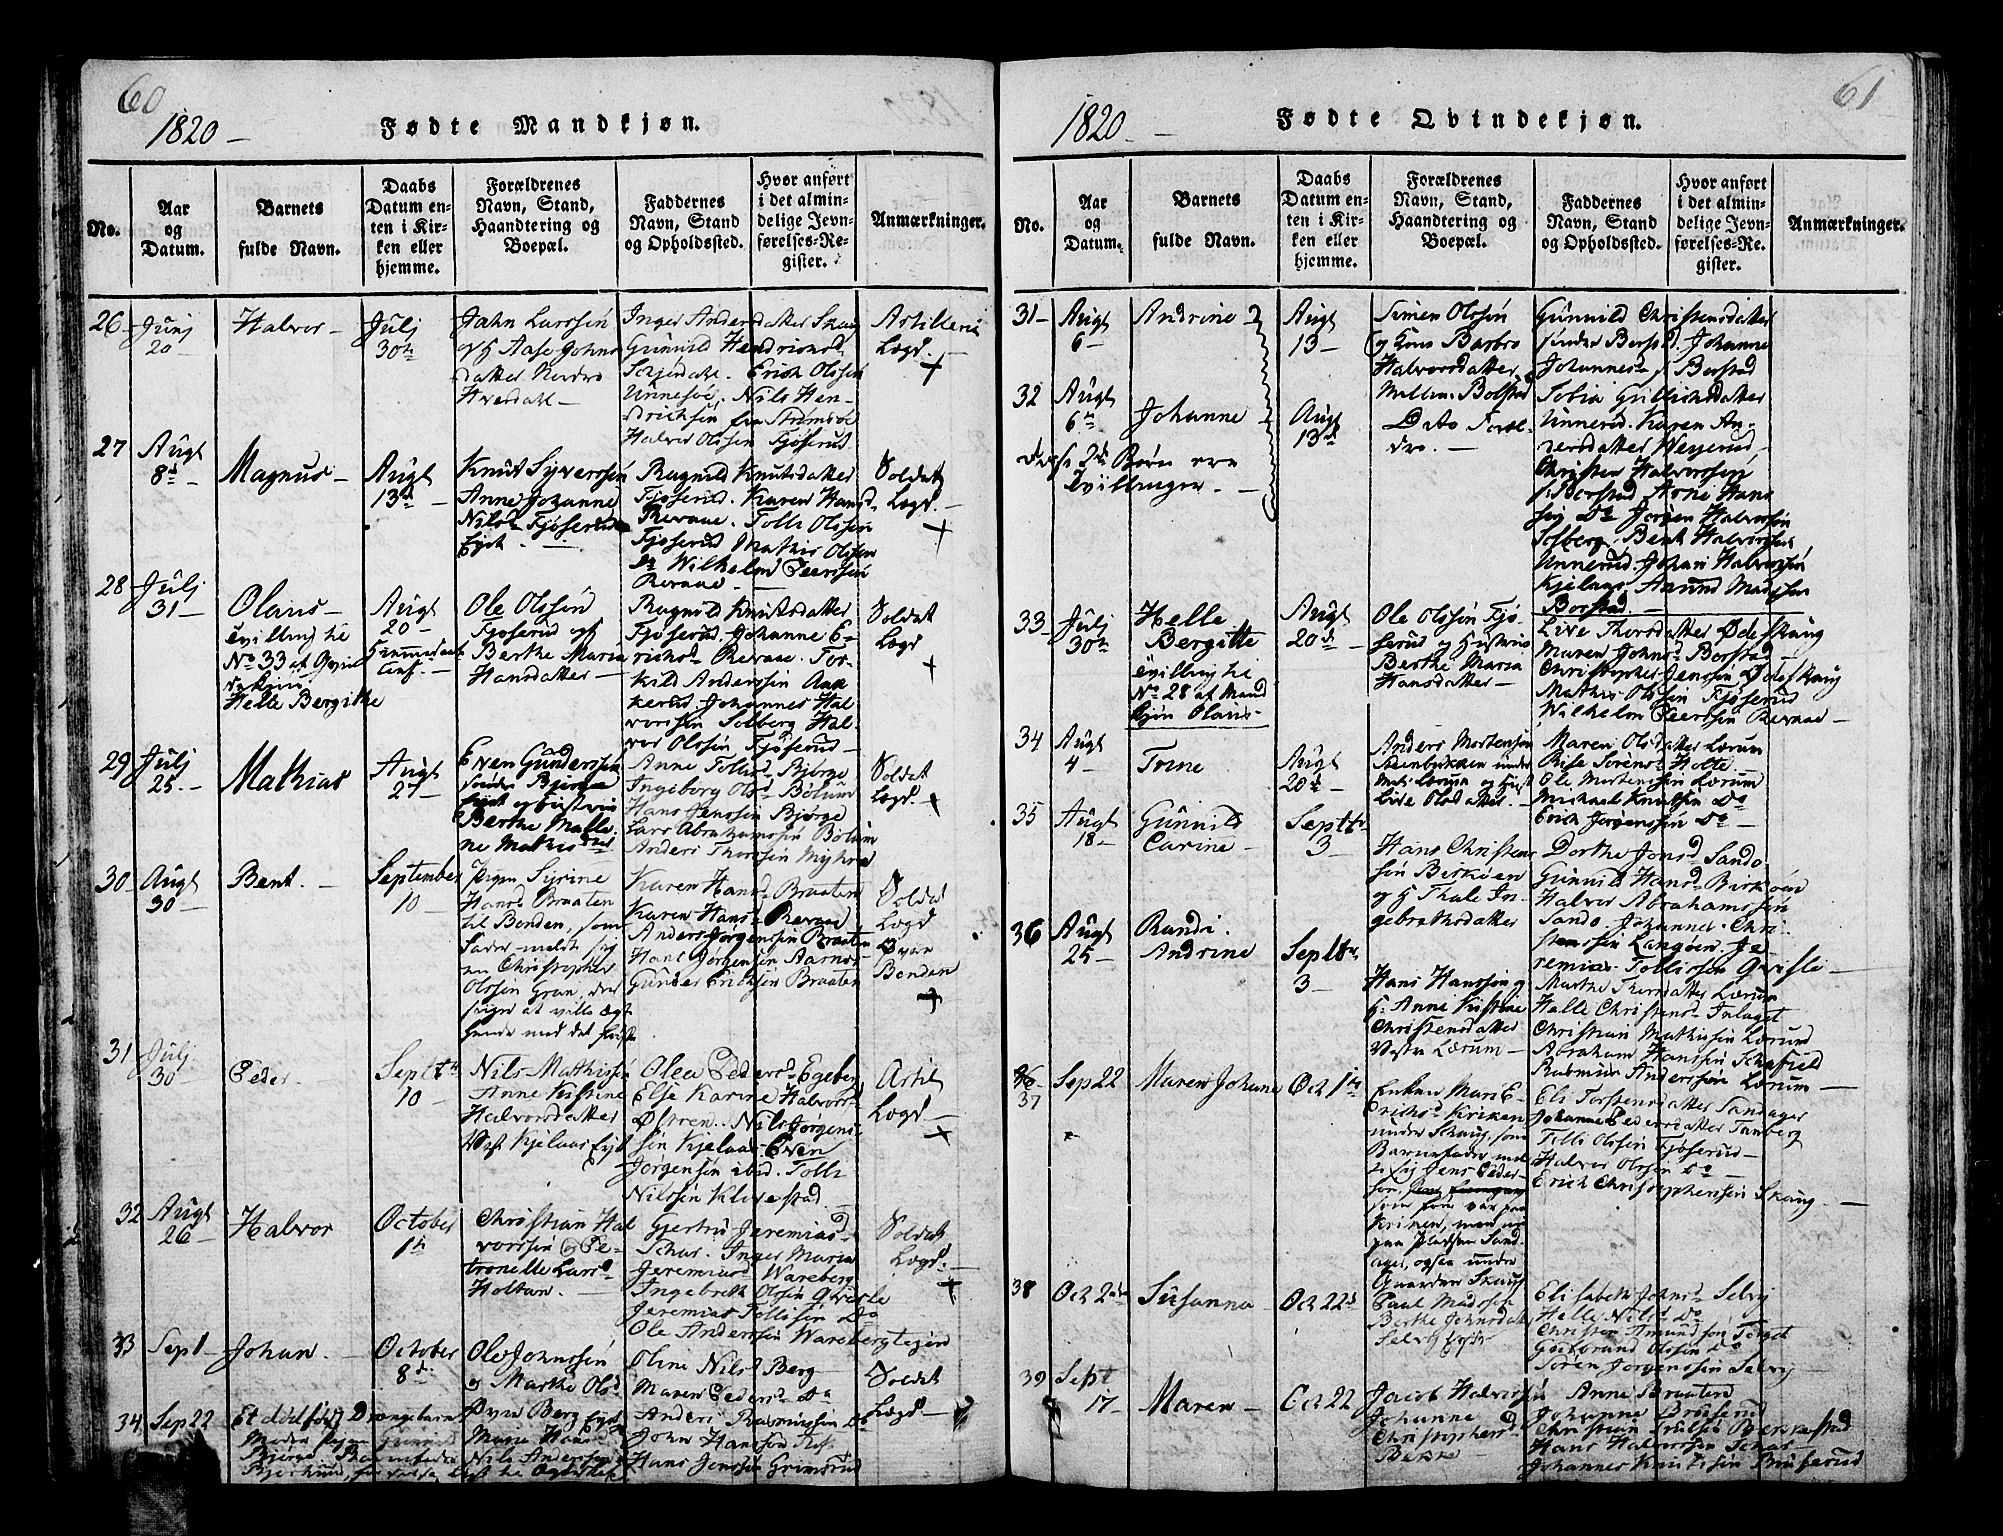 60
1820 –
Fødte Mandkjøn.
No.
Aar
og
Datum.
Barnets
fulde Navn.
Daabs
Datum en-
ten i Kir-
ken eller
hjemme.
Forældrenes
Navn, Stand,
Haandtering og
Boepæl.
Faddernes
Navn, Stand
og Opholdssted.
Hvor anført
i det almin-
delige Jevn-
førelses-Re-
gister.
Anmærkninger.
26
Junj
20 –
Halvor –
Julj
30te
John Larssøn
og H Aase Johns
datter Nordre
Hvesdall –
Inger Andersdatter Skaug
Gunnild Hendrichsd
Erich Olssøn
Unnesøe. Nils Hen-
drichsen
Halvor Olssøn Fjøserud
Artilleri
Lægd. –
+
27
Augt
8de
Magnus –
Augt
13de
Knut Syverssøn
Anne Johanne
Nilsd Fjøserud
Eyet. –
Ragnild Knutsdatter
Fjøserud. Karen Hansd
Revaae. Tolli Olssøn
Fjøserud Mathis Olssøn
Do Wilhelm Peerssøn
Revaae –
Soldat
Lægd. –
+
28
Julj
31 –
Olaus –
tvilling til
No 33 af Qvin
dekjøn
Helle Bergithe
Augt
20 –
Ole Olssøn
Fjøserud og
Berthe Maria
Hansdatter –
Ragnild Knutsdatter
Fjøserud. Johanne E-
richsd Revaae. Tor-
kild Anderssøn Aak
kerud. Johannes Hal
vorssøn Solberg Hal-
vor Olssøn Fjøserud –
Soldat
Lægd
+
29
Julj
25 –
Mathias
Augt
27 –
Even Gunderssen
søndre Bjørge
Eyet og Hustrue
Berthe Malle
ne Mathisd
Anne Tollisd Bjørge
Ingeborg Olsd Bølum
Hans Jenssøn Bjørge
Lars Abrahamssøn Bølum
Anders Thorssøn Myhre
Soldat
Lægd.
+
30
Augt
30 –
Bent. –
September
10 –
Pigen Syrine
Hansd Braaten
til Bonden, som
fader meldt sig
en Christopher
Olssen Gran, der
siges at ville ægt
Karen Hansd Braaten
Karen Hansd Revaae
Anders Jørgenssøn Braaten
Hans Jørgensøn Aarnes
Gunder Erichsøn Braaten
Soldat
Lægd
Over
Bonden
+
31
Julj
30
Peder –
Septbr
10 –
Nils Mathissøn
Anne Kistine
Halvorsdatter
Vest Kjelaas Eyet
Olea Pedersd Egeberg
Else Karine Halvorsd
Østren. Nils Jørgens
søn Kjelaas Even
Jørgensøn ibid. Tolli
Nilssøn Klovestad –
Artil
Lægd –
+
32
Augt
26 –
Halvor
October
1te
Christian Hal
vorssøn og Pe-
tronelle Larsd
Holtan. –
Gjertru Jeremiasd
Schar. Inger Maria
Jeremiasd Wareberg
Ingebreth Olssøn Qvisle
Jeremias Tollissøn Do
Ole Anderssøn Warebergtejen
Soldat
Lægd. –
+
33
Sept 1
Johan. –
October
8de
Ole Johnssøn
og Marthe Olsd
Øvre Berg Eyet
Oline Nilsd Berg
Maren Pedersd Do
Anders Rasmussøn Do
John Hanssøn
Hans Jenssøn Grimsrud
Soldat
Lægd –
34
Sep 22
Et dødfødt Drengebarn
Moder Pigen Gunnild
Marie Hansd
Nils Anderssøn
61
1820 –
Fødte Qvindekjøn.
No.
Aar
og
Datum.
Barnets
fulde Navn.
Daabs
Datum en-
ten i Kir-
ken eller
hjemme.
Forældrenes
Navn, Stand,
Haandtering og
Boepæl.
Faddernes
Navn, Stand
og Opholdssted.
Hvor anført
i det almin-
delige Jevn-
førelses-Re-
gister.
Anmærkninger.
31 –
Augt
6 –
Andrine –
Augt
13 –
Simen Olssøn
og Kone Barbro
Halvorsdatter
Mellem Bolstad
Gunnild Christensdatter
søndre Borstad. Johanne
Johannesd Borstad
32
Augt
6te
Johanne
Augt
13de
Dito Foræl-
dre. –
disse 2de Børn ere
Tvillinger. –
Tobia Gullichsdatter
Unnerud. Karen An-
dersdatter Weyerud,
Christen Halvorssøn
s: Borstad Arne Hans
søn Do Jørgen Halvorssøn
Solberg. Bent Halvorssøn
Unnerud. Johan Halvorssøn
Kjelaas Amund Madssøn
Borstad –
33
Julj
30te
Helle
Bergitte
tvilling til
No 28 af Mand
kjøn Olaus –
Augt
20de
Ole Olssøn Fjø-
serud og Hustrue
Berthe Maria
Hansdatter –
Live Thorsdatter Ødeskaug
Maren Johnsd Borstad –
Christopher Jenssøn Ødeskaug
Mathis Olssøn Fjøserud
Wilhelm Peerssøn Revaae –
34
Augt
4 –
Trine
Augt
20de
Anders Mortensøn
Steenbukken under
Lærum og Hust
Live Olsdatter. –
Maren Olsdatter Lærum
Rise Sørensd Holte
Ole Mortenssøn Lærum
Michael Knutsøn Do
Erich Jørgenssøn Do –
35
Augt
18 –
Gunnild
Carine –
Septbr
3 –
Hans Christens
søn Birkøen
og H Thale In-
gebrethsdatter
Dorthe Jonsd Sando
Gunnild Hansd Birkøen
Halvor Abrahamssøn
Sando. Johannes Chri-
stenssøn Langøen. Je
remias Tollissøn Qvisle –
36
Augt
25 –
Randi
Andrine
Septbr
3 –
Hans Hanssøn og
H. Anne Kistine
Christensdatter
Vestre Lærum –
Marthe Thorsdatter Lærum
Halle Christensd Inlaget
Christian Mathissøn Lærum
Abraham Hanssøn
Rasmus Anderssøn Lærum –
37
Sep 22
Maren Johanne
Oct 1te
Enken Mari E-
richsd Kriken
under Skaug, som
Barnefader meld
te sig Jens Peder-
søn,
som før var paa
Kriken, men nu
paa Pladsen Sand
ager, ogsaa under
Gaarden Skaug
Eli Torstensdatter Sandager
Johanne Pedersdatter Tanberg
Tolli Olssøn Fjøserud –
Halvor Olssøn Do
Erich Christophersøn Skaug –
38
Oct 2den
Susanna
Oct 22de
Paul Madssøn
Berthe Johnsdatt
Selvig Eyet
Elisabeth Johnsd Selvig
Helle Nilsd Do
Christen Amundssøn Torget
Gudbrand Olssøn Do
Søren Jørgenssøn Selvig
39
Sept
17
Maren –
Oct 22
Jacob Halvorssøn
Johanne
Christophersd
Berke
Anne Braaten
Johanne Bruserud
Christian Trulssøn Berkestad
Hans Halvorssøn Schar –
Johannes Knutssøn Bruserud